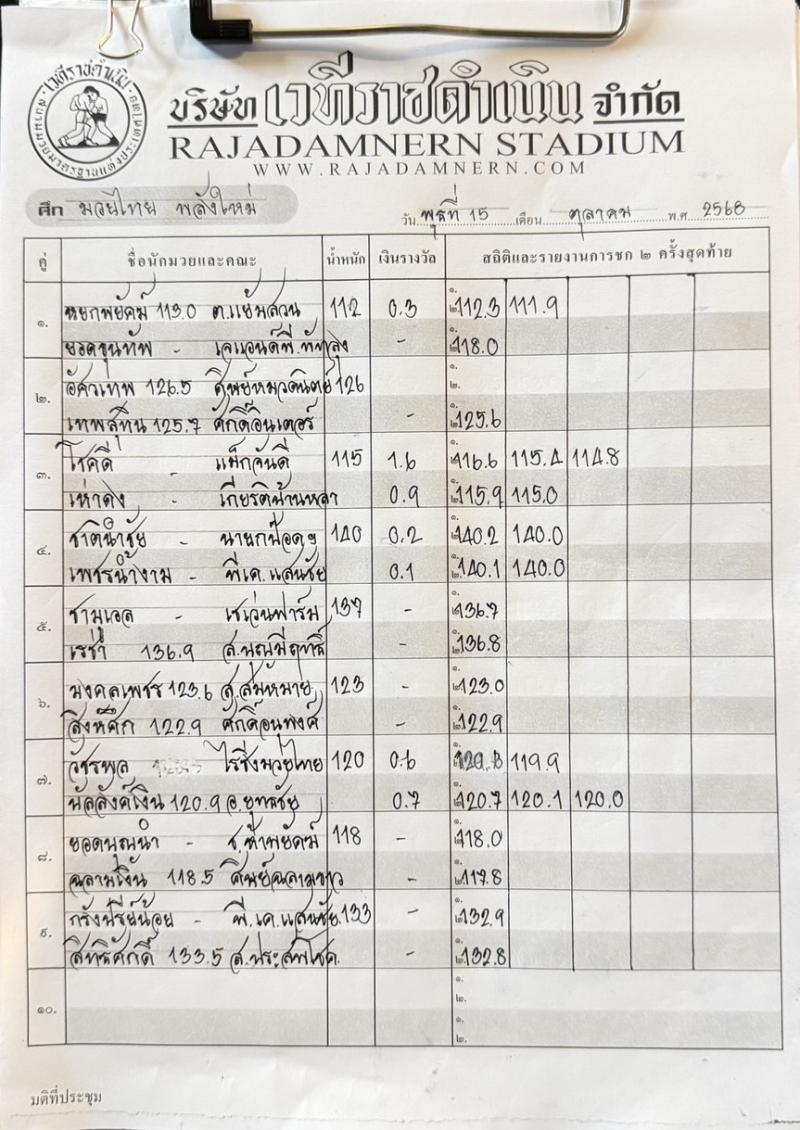 เวทีราชดำเนิน
สนามมวยมาตรฐานแห่งประเทศไทย
บริษัท เวทีราชดำเนิน จำกัด
RAJADAMNERN STADIUM
WWW.RAJADAMNERN.COM
ศึก มวยไทย พลังใหม่ วัน พุธที่ 15 เดือน ตุลาคม พ.ศ. 2568
คู่ ชื่อนักมวยและคณะ น้ำหนัก เงินรางวัล สถิติและรายงานการชก ๒ ครั้งสุดท้าย
๑. หยกพยัคฆ์ 113.0 ต.แย้มสวน 112 0.3 ๑. ๒. 112.3 111.9
ยอดขุนทัพ - เจแอนด์พี.พัทลุง - ๑. ๒. 118.0
๒. อัศวเทพ 126.5 ศิษย์หมวดนิตย์ 126 ๑. ๒.
เทพสุทิน 125.7 ศักดิ์อินเตอร์ - ๑. ๒. 125.6
๓. โชคดี - แม็กจันดี 115 1.6 ๑. ๒. 116.6 115.4 114.8
เห่าดง - เกียรติบ้านหลา 0.9 ๑. ๒. 115.9 115.0
๔. ชาตินำชัย - นายกป๊อดฯ 140 0.2 ๑. ๒. 140.2 140.0
เพชรน้ำงาม - พี.เค.แสนชัย 0.1 ๑. ๒. 140.1 140.0
๕. ซามูเอล - เซเว่นฟาร์ม 137 - ๑. ๒. 136.7
เรซ่า 136.9 - ๑. ๒. 136.8
๖. มงคลเพชร 123.6 ส.สมหมาย 123 - ๑. ๒. 123.0
สิงห์ศึก 122.9 ศักดิ์อนุพงศ์ - ๑. ๒. 122.9
๗. วัชรพล ไรซิ่งมวยไทย 120 0.6 ๑. ๒. 120.8 119.9
บัลลังค์เงิน 120.9 อ.ยุทธชัย 0.7 ๑. ๒. 120.7 120.1 120.0
๘. ยอดบุญนำ - ช.ห้าพยัคฆ์ 118 - ๑. ๒. 118.0
ฉลามเงิน 118.5 ศิษย์ฉลามขาว - ๑. ๒. 117.8
๙. - พี.เค.แสนชัย 133 - ๑. ๒. 132.9
สิทธิศักดิ์ 133.5 ส.ประสพโชค. - ๑. ๒. 132.8
๑๐. ๑.
๒.
๑.
๒.
มติที่ประชุม